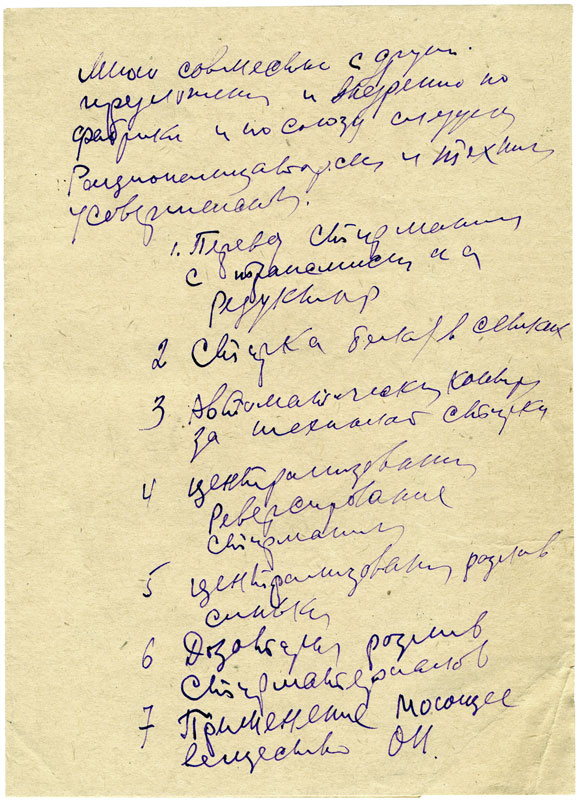 Мною совместно с други
предложены и внедрено по
фабрики и по союзу следующ
Рационализаторски и технич
усовершенств.
1. Перевод стирмашин
с на
Редуктор
2 Стирка белья в сетках
3 Автоматически контр
за технолог стирки
4 централизовани
Реверсирование
стирмашин
5 централизовани розлив
синьки
6 Дозатори розлив
стирматериалов
7 Применение моющее
вещество ОП.